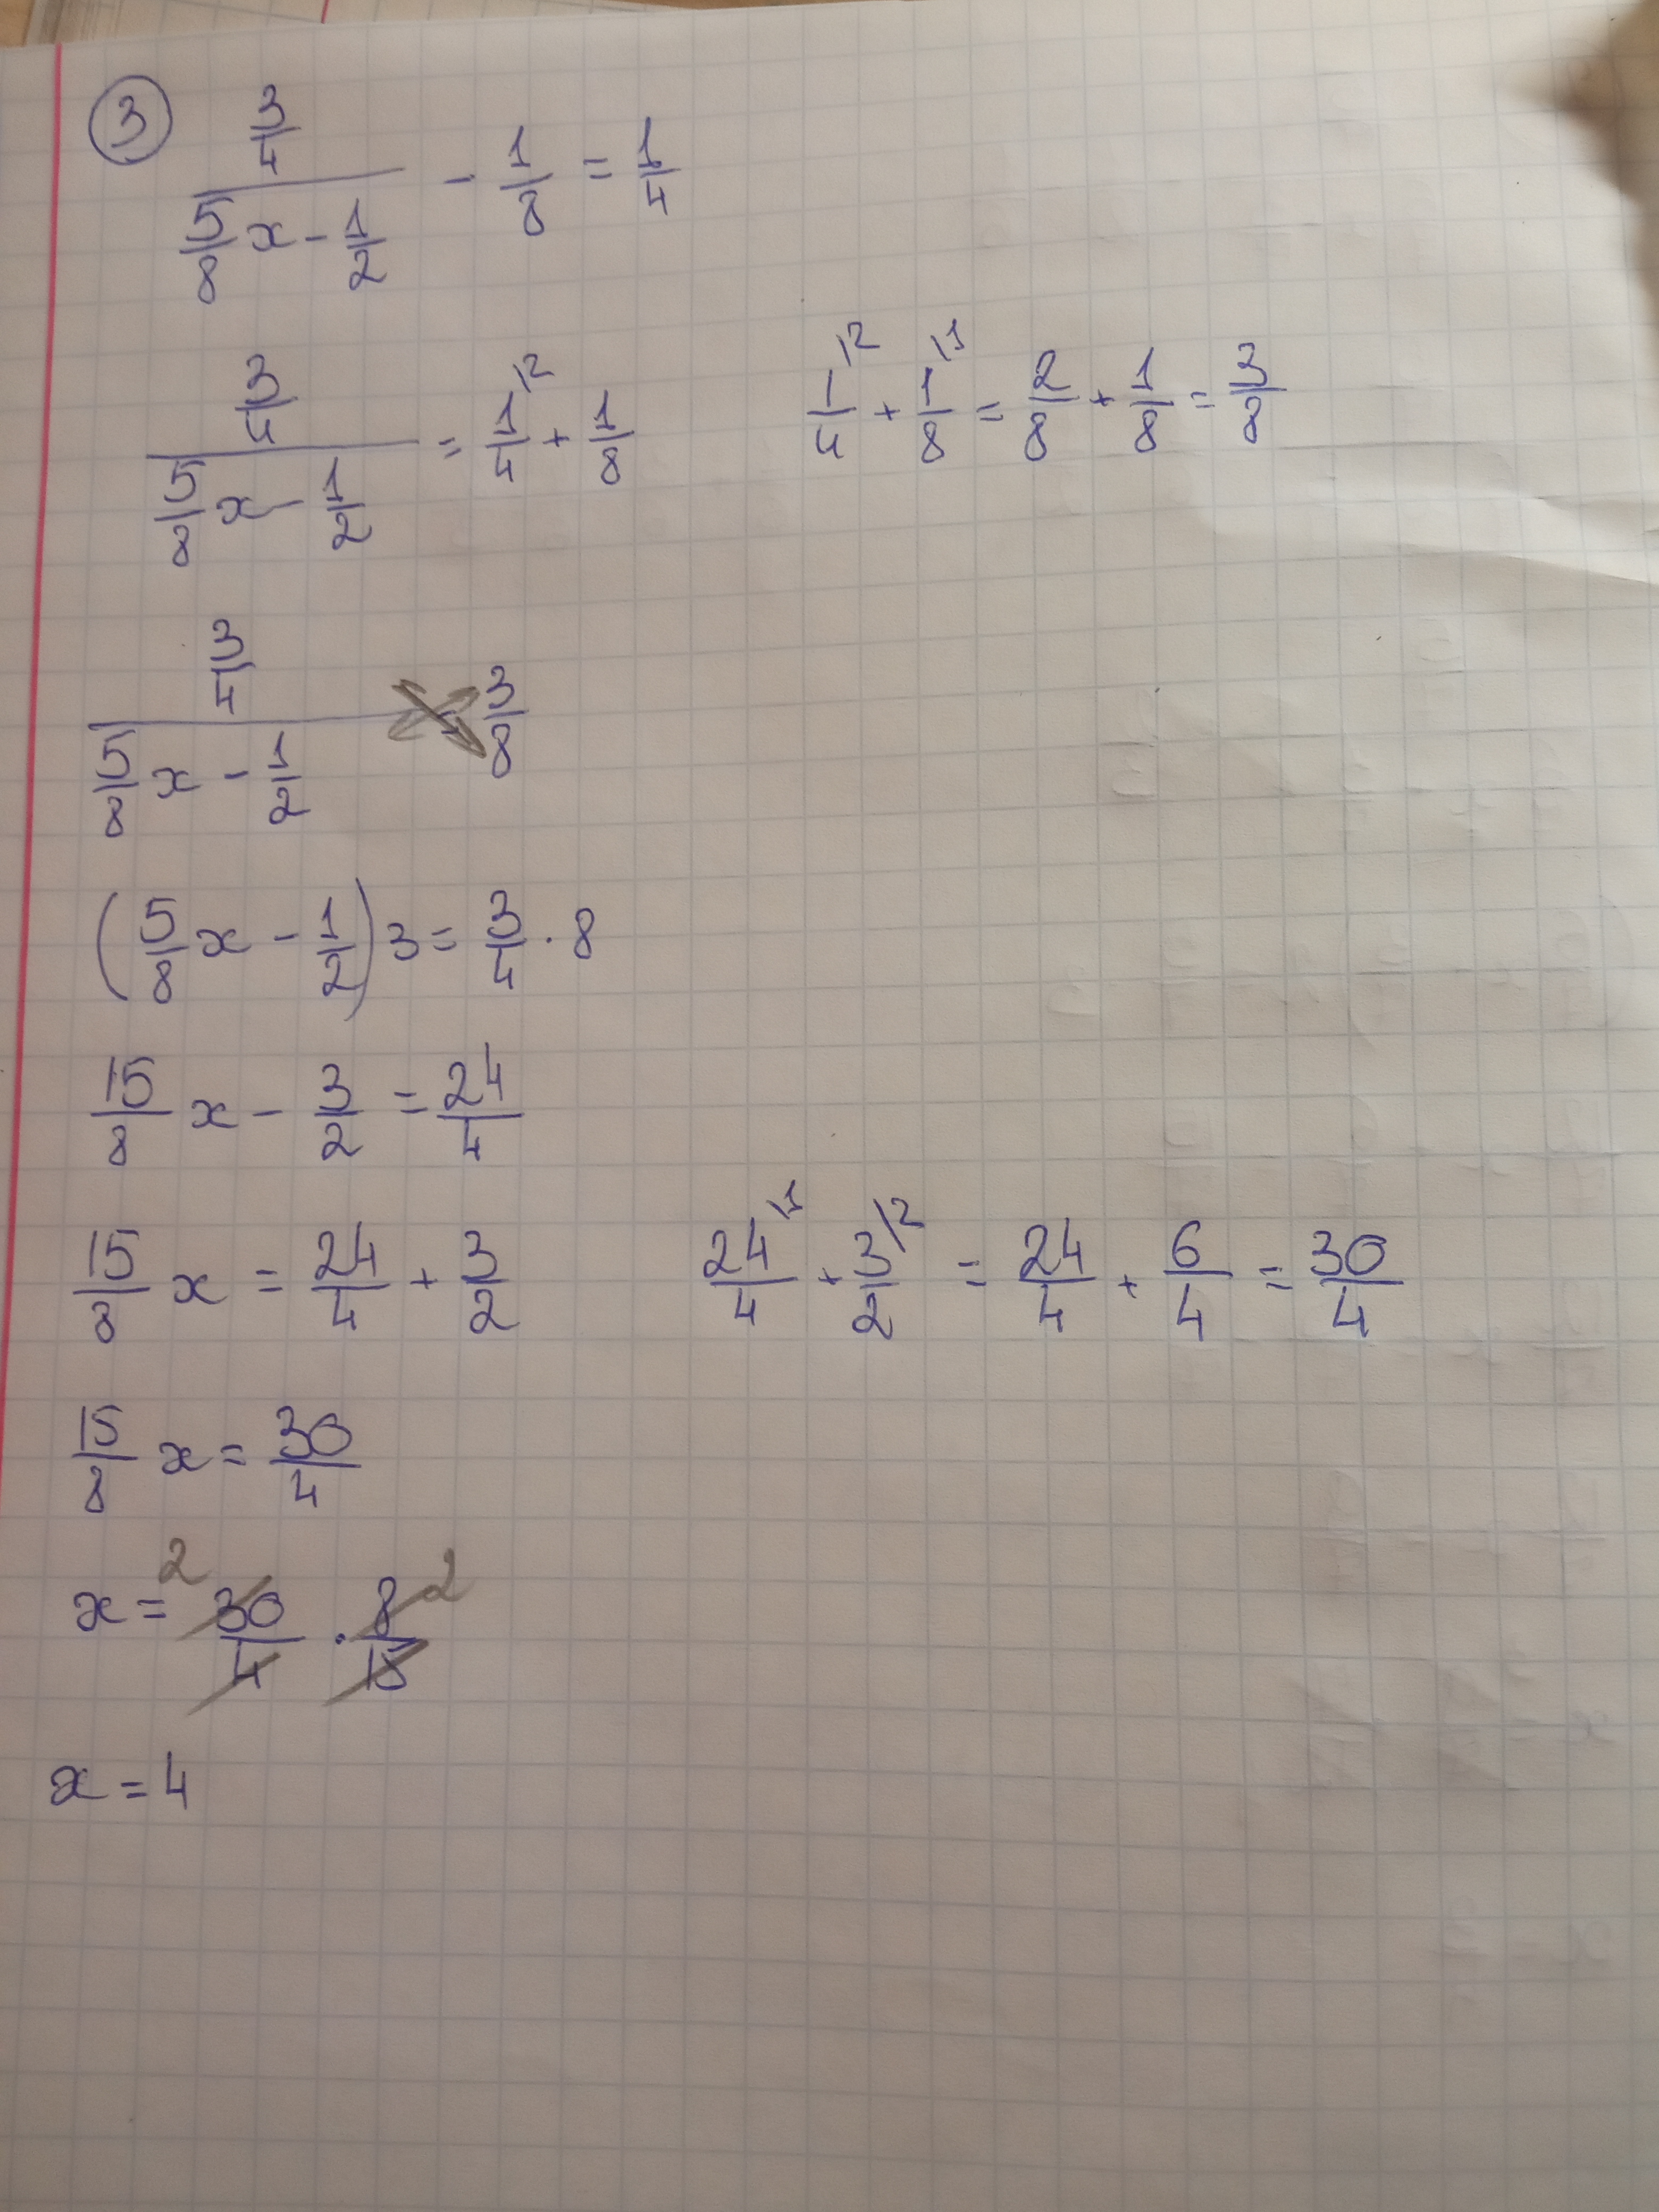 3
(3/4)/(5/8 x - 1/2) - 1/8 = 1/4
(3/4)/(5/8 x - 1/2) = 1/4 \2 + 1/8
1/4 \2 + 1/8 \1 = 2/8 + 1/8 = 3/8
(3/4)/(5/8 x - 1/2) = 3/8
(5/8 x - 1/2) 3 = 3/4 · 8
15/8 x - 3/2 = 24/4
15/8 x = 24/4 + 3/2
24/4 \1 + 3/2 /2 = 24/4 + 6/4 = 30/4
15/8 x = 30/4
x = 2 30/4 · 8/15 2
x = 4